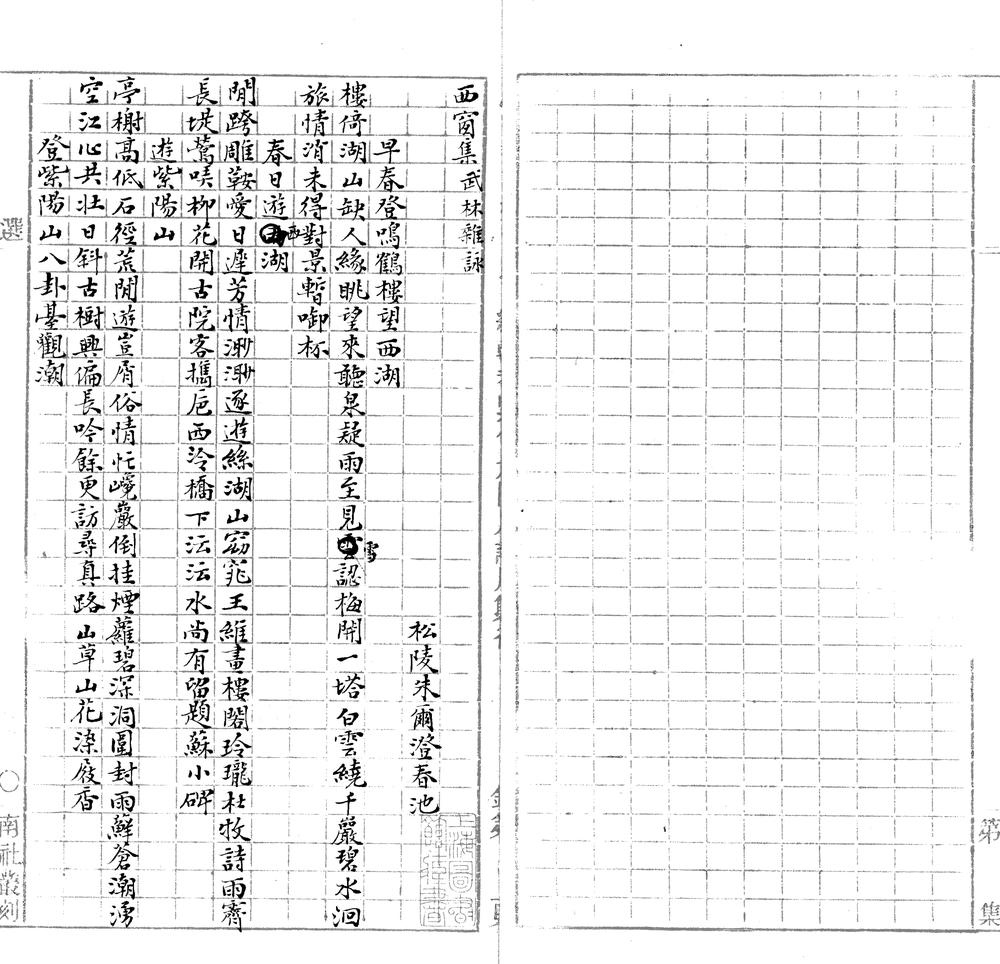 西窗集武林雜詠
松陵朱爾澄春池
早春登鳴鶴樓望西湖
樓倚湖山缺人緣眺望來聽泉疑雨至見雪認梅開一塔白雲繞千巖碧水洄
旅情消未得對景暫啣杯
春日遊西湖
閒跨雕鞍愛日遲芳情渺渺逐遊絲湖山窈窕王維畫樓閣玲瓏杜牧詩雨霽
長堤鶯啼柳花開古院客攜巵西泠橋下沄沄水尚有留題蘇小碑
遊紫陽山
亭榭高低石徑荒閒遊豈屑俗情忙巉巖倒挂煙蘿碧深洞圍封雨鮮蒼潮湧
空江心共壯日斜古樹興偏長吟餘更訪尋真路山草山花染屐香
登紫陽山八卦臺觀潮
選
〇
南社叢刻
第
集
上海圖書館藏書